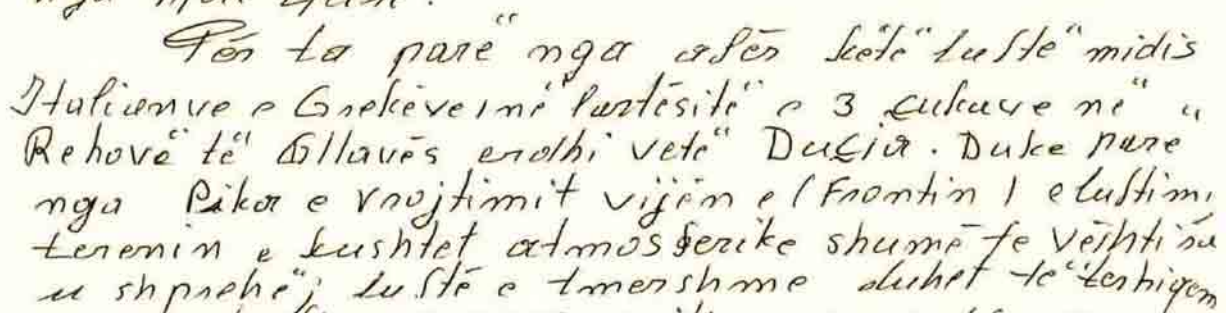 Për ta parë nga afër këtë luftë midis
Italianve e Grekëve në lartësitë e 3 çukave në
Rehovë të Gllavës erdhi vetë Duçia. Duke parë
nga Pika e vrojtimit vijën e (Frontin) e luftimi
terenin e kushtet atmosferike shumë te vështira
u shprehë; luftë e tmershme duhet të tërhiqem